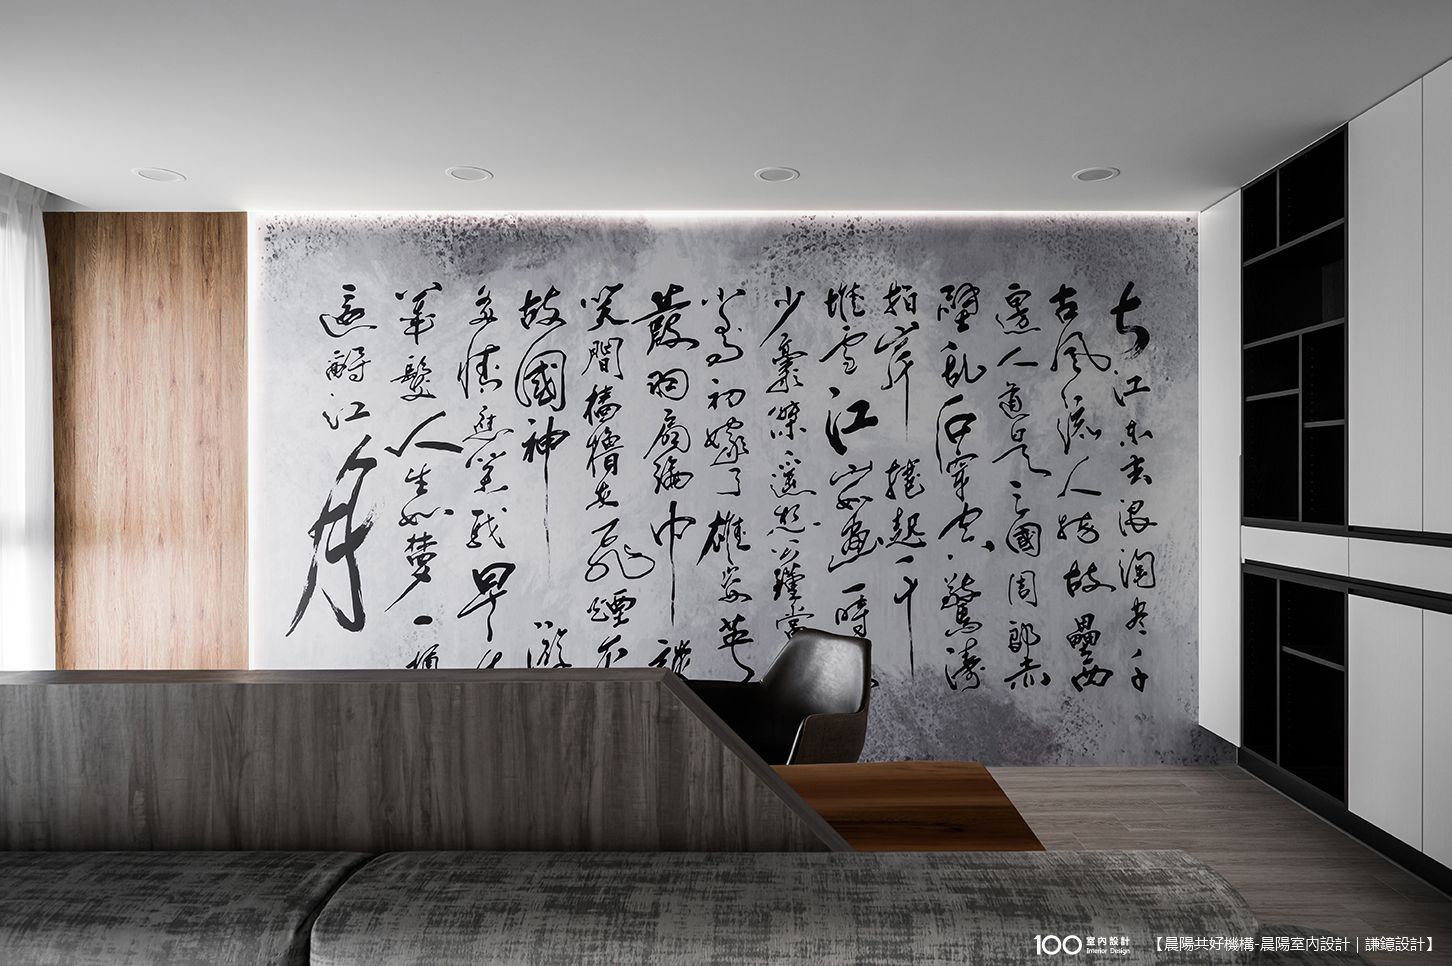 大江東去浪淘尽千
古風流人物故壘西
邊人道是三國周郎赤
壁乱石穿空驚濤
拍岸捲起千
堆雪江山如畫一時
少豪傑遙想公瑾當
小喬初嫁了雄姿英
發羽扇綸巾談
笑間檣櫓灰飛煙
故國神游
多情應笑我早生
華髮人生如夢一樽
還酹江月
100 室內設計 Interior Design 【晨陽共好機構-晨陽室內設計｜謙鐿設計】